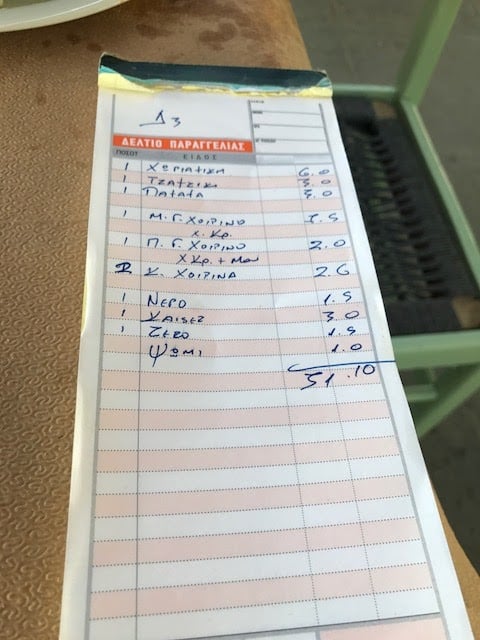 Δ3
ΔΕΛΤΙΟ ΠΑΡΑΓΓΕΛΙΑΣ
ΠΟΣΟΤ ΕΙΔΟΣ
1 ΧΩΡΙΑΤΙΚΗ 6.0
1 ΤΖΑΤΖΙΚΙ 3.0
1 ΠΑΤΑΤΑ 3.0
1 Μ. Γ. ΧΟΙΡΙΝΟ 7.5
Χ. ΚΡ.
1 Π. Γ. ΧΟΙΡΙΝΟ 2.0
Χ ΚΡ. +
Κ. ΧΟΙΡΙΝΑ 2.6
1 ΝΕΡΟ 1.5
1 ΚΑΙΖΕΡ 3.0
1 ΖΕΡΟ 1.5
ΨΩΜΙ 1.0
31.10